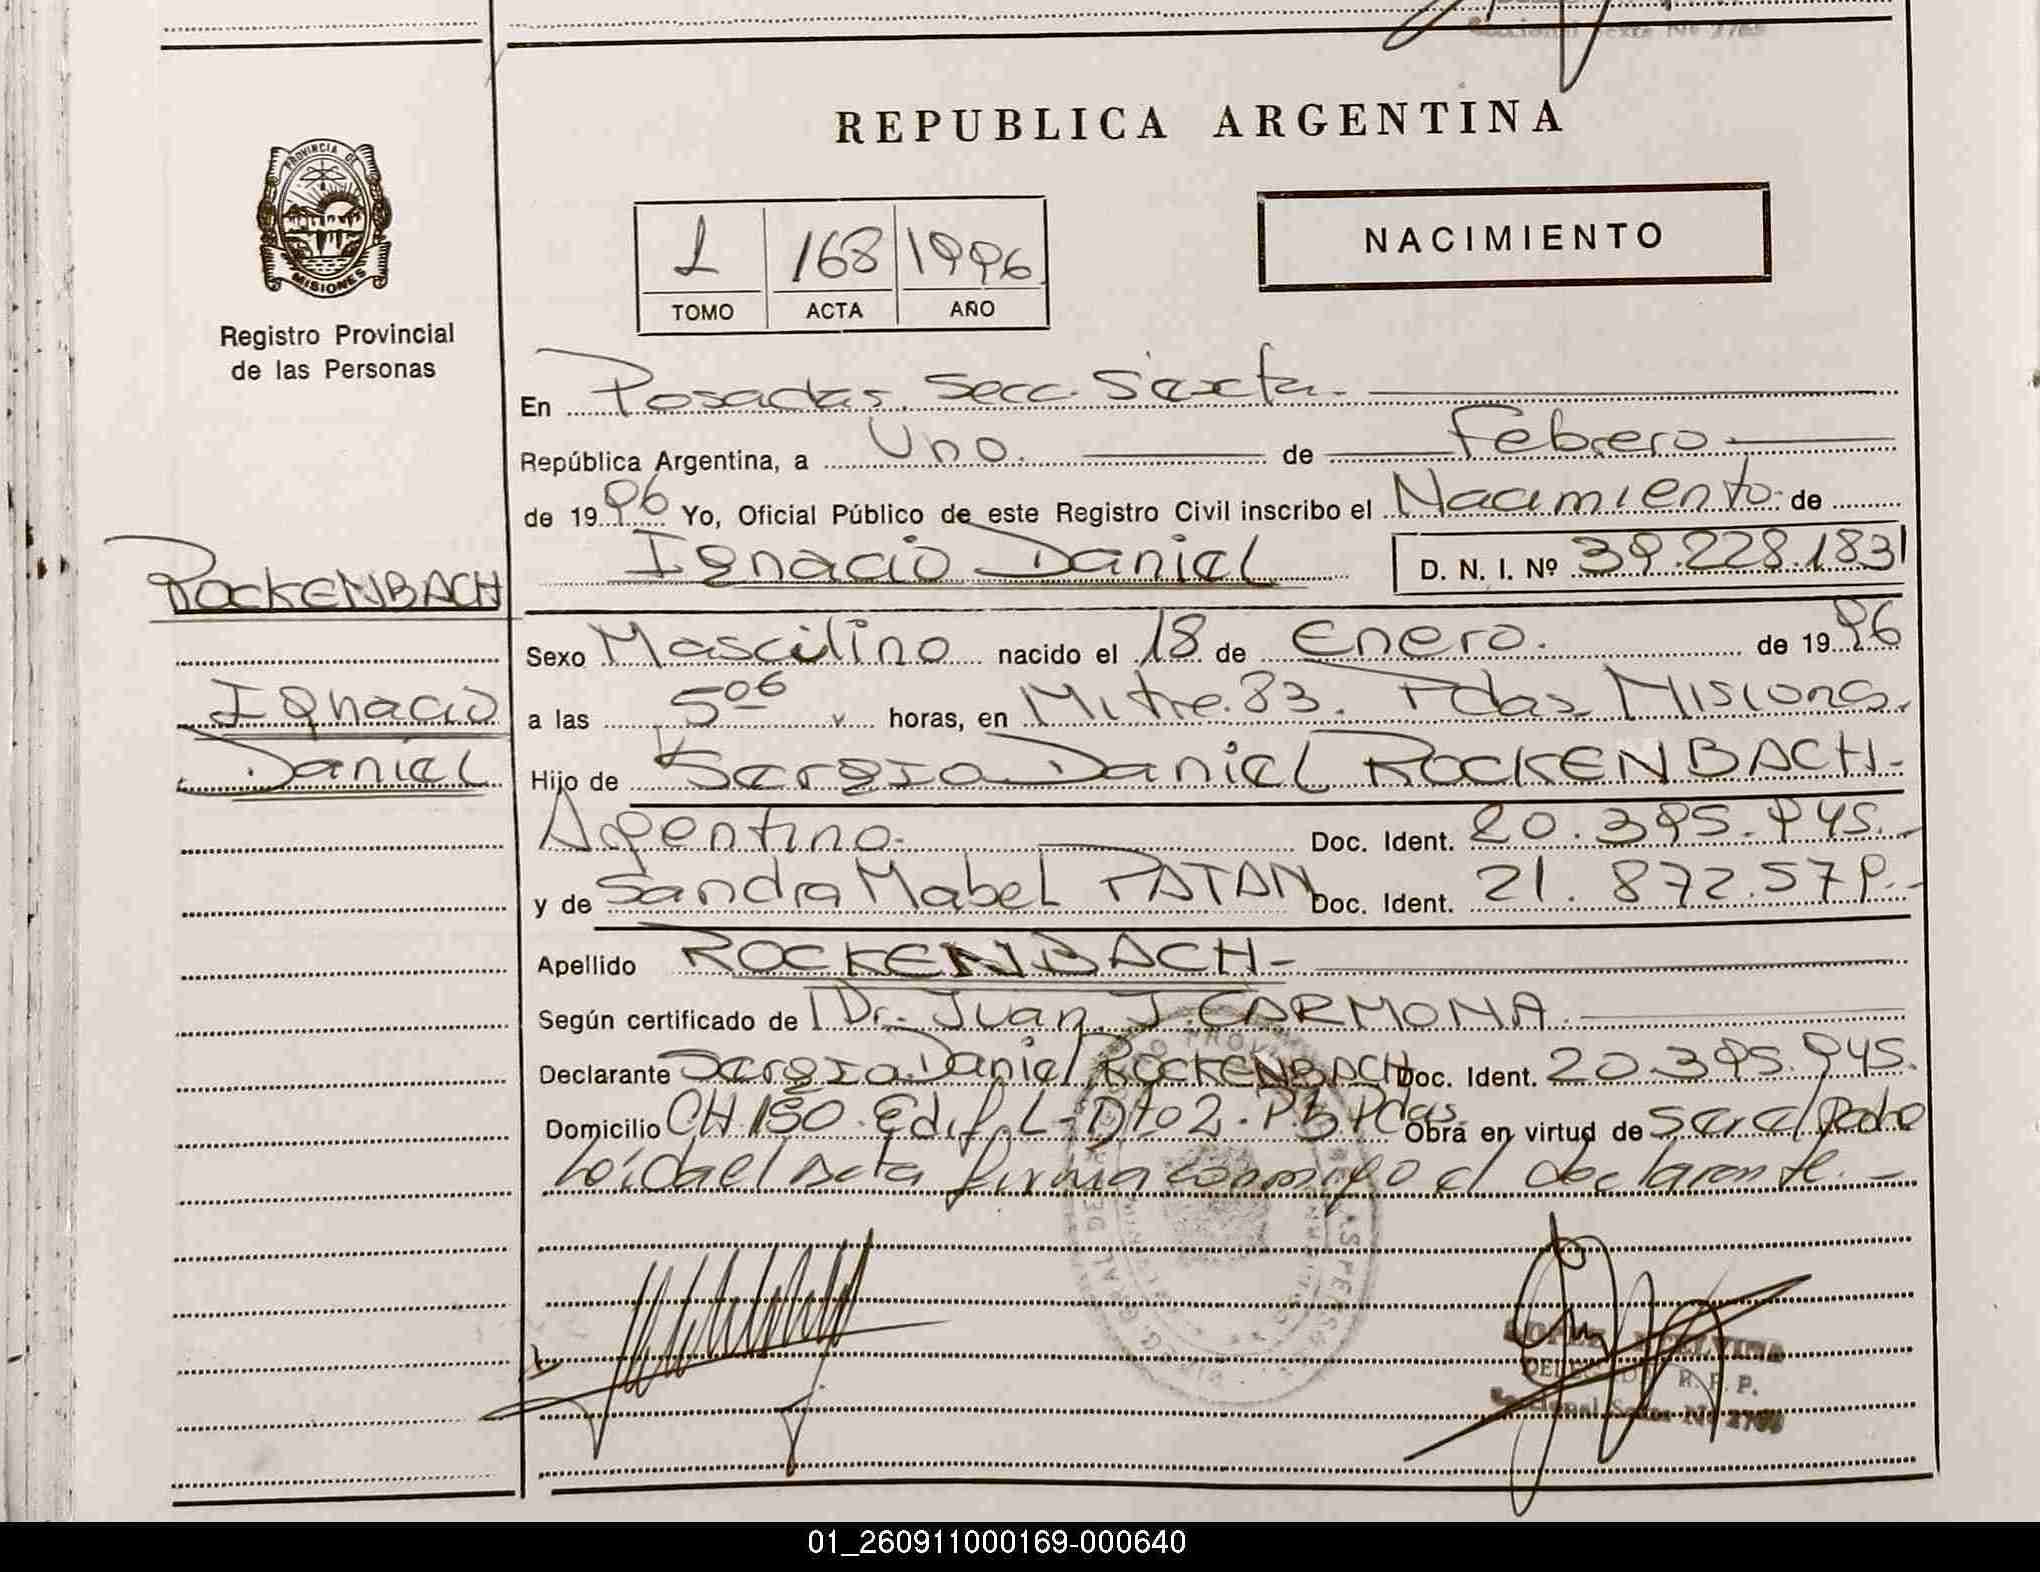 REPUBLICA ARGENTINA
PROVINCIA DE
MISIONES
Registro Provincial
de las Personas
1 168 1996
TOMO ACTA AÑO
NACIMIENTO
En Posadas, Secc. Sexta.
República Argentina, a Uno. de Febrero.
de 1996 Yo, Oficial Público de este Registro Civil inscribo el Nacimiento de
Ignacio Daniel D. N. I. Nº 39.228.183
ROCKENBACH
Ignacio
Daniel
Sexo Masculino nacido el 18 de Enero. de 1996
a las 5 06 horas, en Mitre. 83. Pdas Misiones.
Hijo de Sergio Daniel ROCKENBACH-
Argentino. Doc. Ident. 20.395.945.-
y de Sandra Mabel PATAN Doc. Ident. 21.872.579.-
Apellido ROCKENBACH-
Según certificado de Dr. Juan J. CARMONA.
Declarante Sergio Daniel ROCKENBACH Doc. Ident. 20.395.945.
Domicilio CH 150 Edif. L- Dto 2. P.B Pdas Obra en virtud de ser el padre
Leída el Acta firma conmigo el declarante.-
R. P. P.
Seccional Sexta Nº
01_260911000169-000640